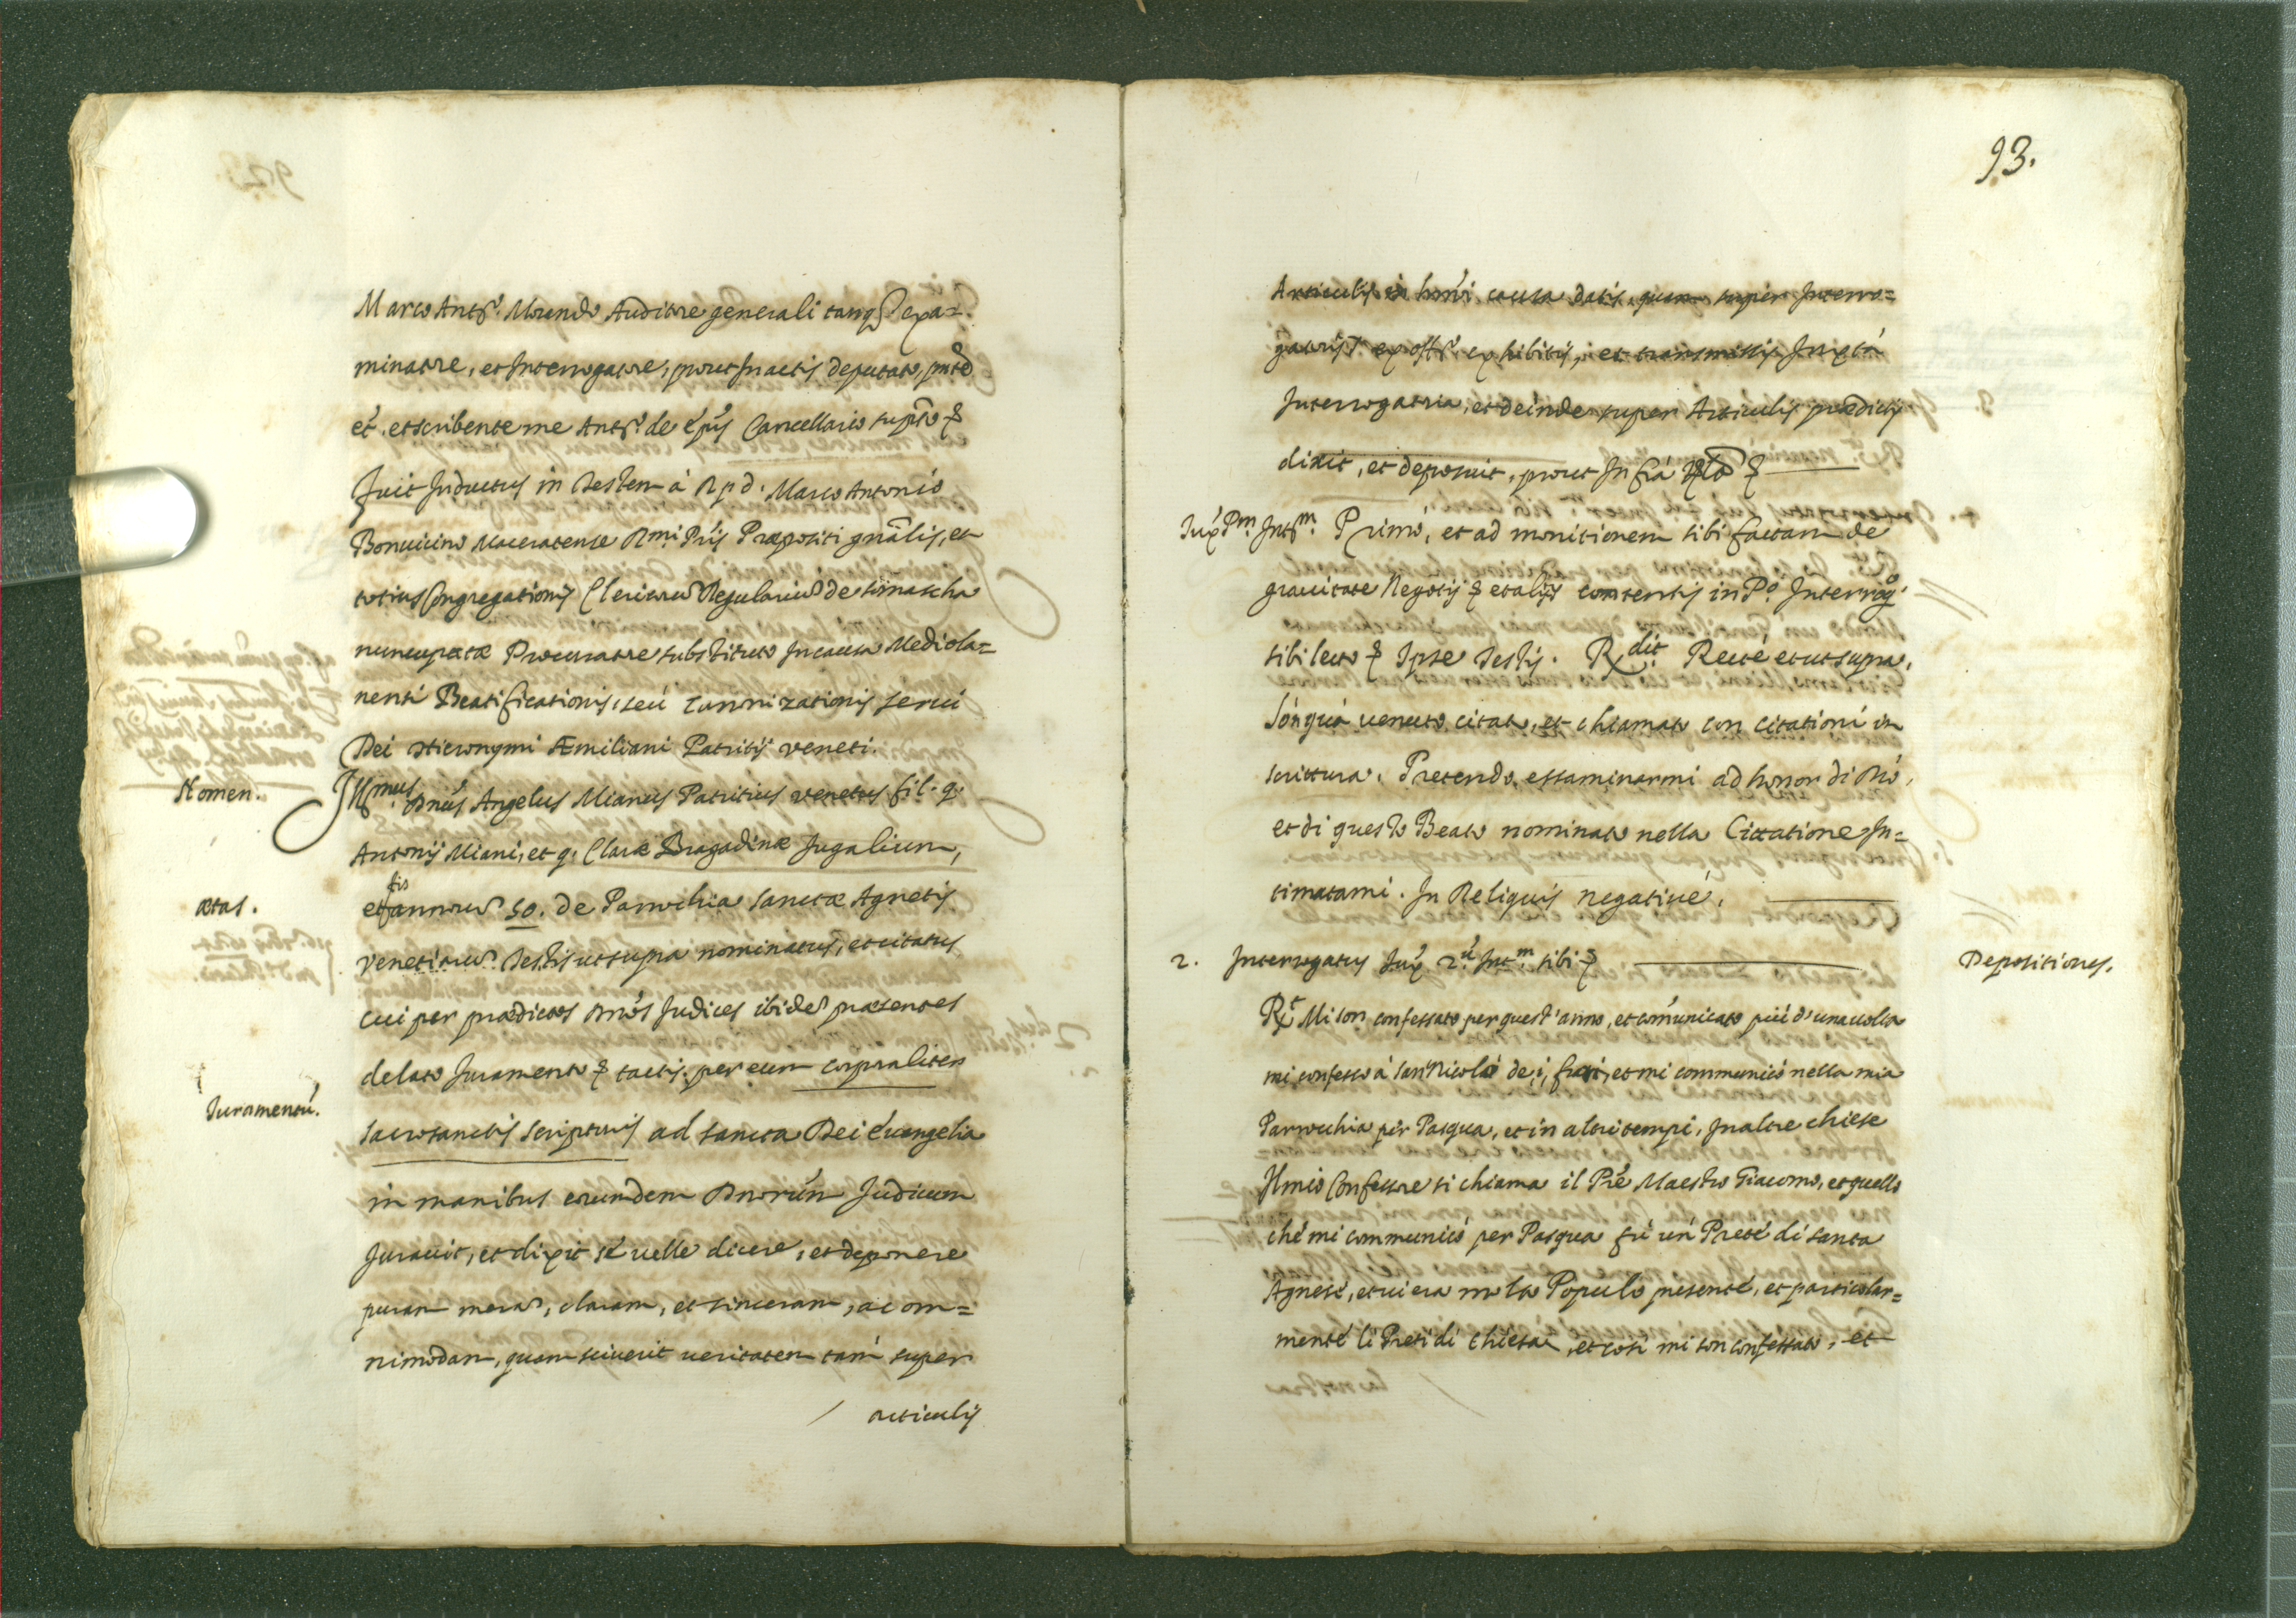 Marco Antº. Morando Auditore generali tanqȝ exa=
minatore, et Interrogatore, prout In actis deputato, pntē
ét, et scribente me Antº. de épis Cancellario suprto &
fuit Inductus in Testem à R.p.d. Marco Antonio
Bonuicino Maceratense Rmi Pris Præpositi gnālis, et
totius Congregationis Clericorū Regulariū de somascha
nuncupatæ Procuratore substituto In causa Mediola=
nensi Beatificationis, seú Canonizationis serui
Dei Hieronymi Æmiliani Patritij veneti.
Nomen. Illmus Dnús Angelus Mianus Patritius venetus fil. q.
Antonij Miani, et q. Claræ Bragadinæ Jugalium,
ætas. etatis annorū 50. de Parochia sanctæ Agnetis
venetiarū Testis ut supra nominatus, et citatus
cui per prædictos Dnós Judices ibidē præsentes
delato Juramento & tactis per eum corporaliter
Juramentú. sacrosanctis scripturis ad sancta Dei éuangelia
in manibus eorumdem Dnorúm Judicum
Jurauit, et dixit sé uelle dicere, et deponere
puram merā, claram, et sinceram, ac om=
nimodam, quam sciuerit ueritatem tam super
articulis
93.
Articulis in homói causa datis, quam super Interro=
gatorijs ex offº. exhibitis, et transmissis Iuxtá
Interrogatoria, et deinde super Articulis prædictis
dixit, et deposuit, prout Infrá &
Iux Pm. Intm. Primò, et ad monitionem sibi factam de
grauitate Negotij & et alijs contentis in Pº. Interrog.
sibi lecto & Ipse Testis. Rdit. Recté et ut supra,
són quá uenuto citato, et chiamato con citationi in
scrittura. Pretendo essaminarmi ad honor di Dio,
et di questo Beato nominato nella Cittatione In=
timatami. In Reliquis negatiué.
2. Interrogatus Iux 2ú. Intm. sibi &
Depositiones.
Rt. Mi son confessato per quest'anno, et cómunicato piú d'una uolta
mi confesso à San Nicoló dei frari, et mi communicò nella mia
Parochia per Pasqua, et in altri tempi, In altre chiese
Il mio Confessore si chiama il Pré Maestro Giacomo, et quello
ché mi communicò per Pasqua fú un Preté di santa
Agnesé, et ui era molto Populo presenté, et particolar=
menté li Preti di chiesa, et cosi mi son confessato, et